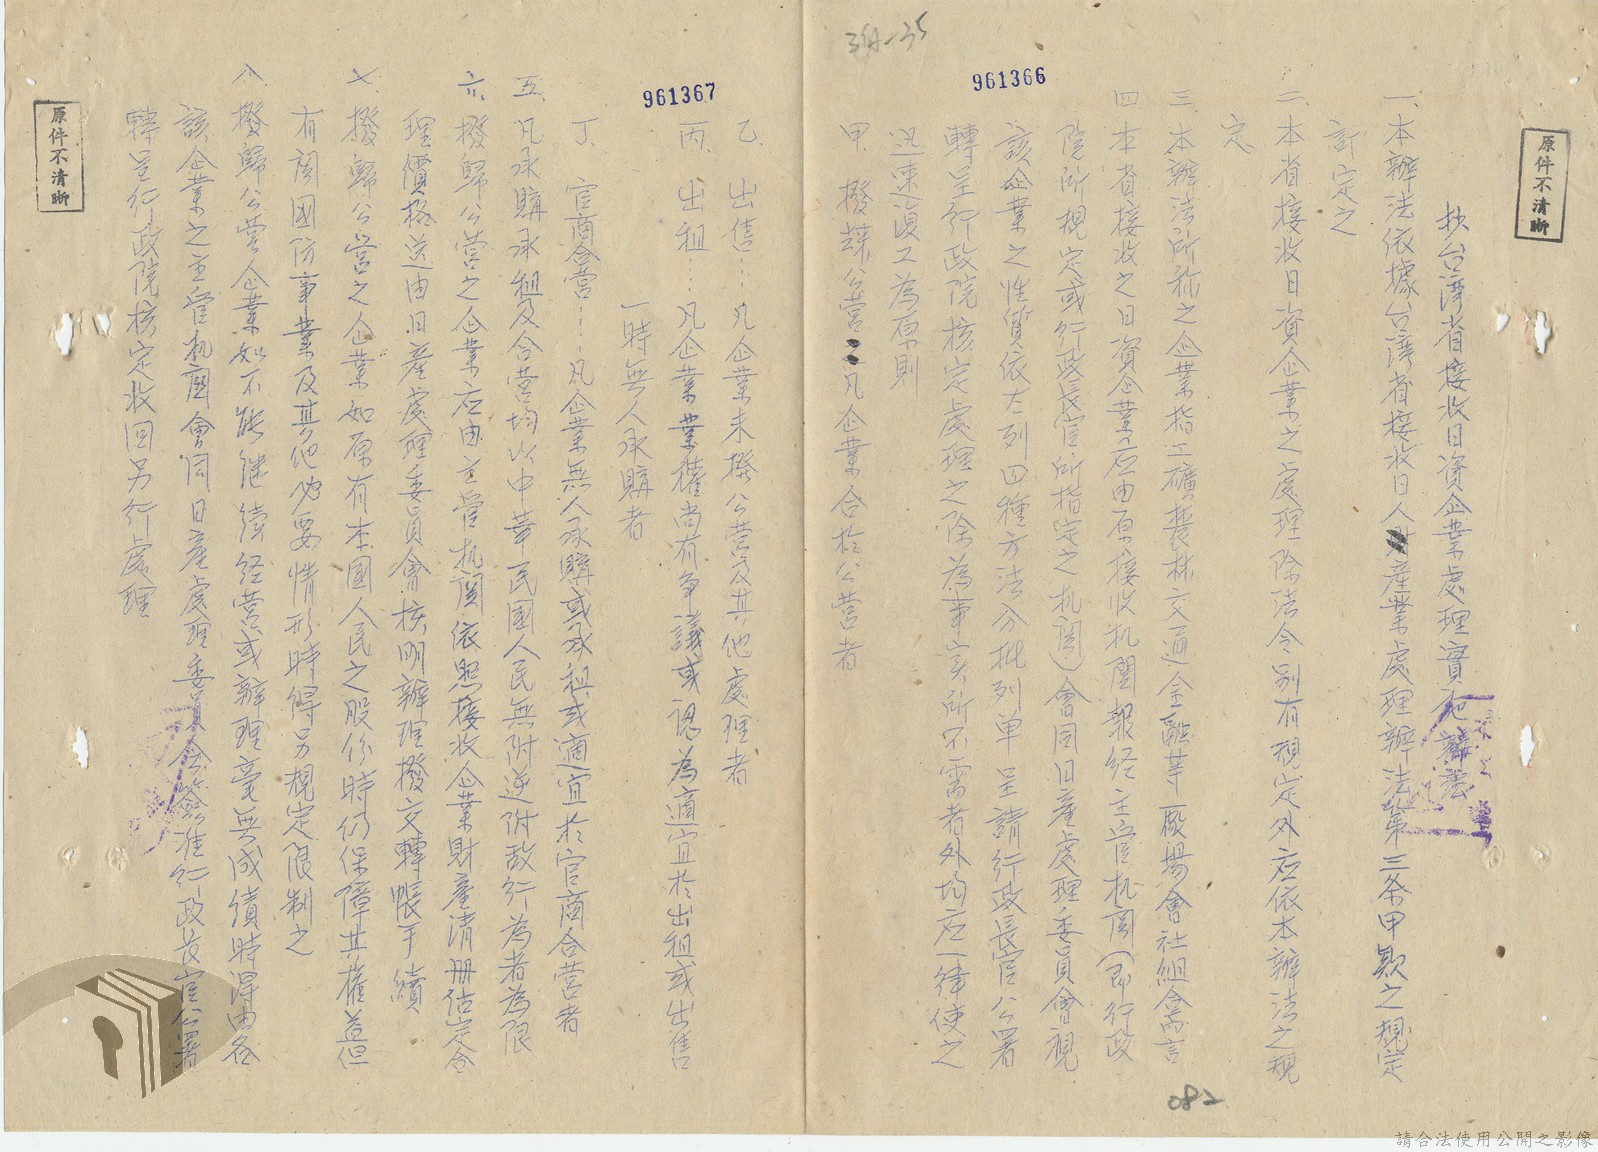 3A-35
961366
原件不清晰
抄台湾省接收日資企業處理實施辦法
一、本辦法依據台湾省接收日人財產業處理辦法第三条甲欵之規定
訂定之
二、本省接收日資企業之處理除法令别有規定外应依本辦法之規
定
三、本辦法所称之企業指工礦農林交通金融等厰場會社組合而言
四、本省接收之日資企業应由原接收机関報経主官机関(即行政
院所規定或行政長官所指定之机関)會同日產處理委員會視
該企業之性質依左列四種方法分批列单呈請行政長官公署
轉呈行政院核定處理之除為事实所不需者外均应一律使之
迅速復工為原則
甲、撥歸公营…凡企業合於公营者
961367
乙、出售…凡企業未撥公营及其他處理者
丙、出租…凡企業業權尚有争議或認為適宜於出租或出售
一時無人承購者
丁、官商合营…凡企業無人承購或承租或適宜於官商合营者
五、凡承購承租及合营均以中華民國人民無附逆附敌行為者為限
六、撥歸公营之企業应由主管机関依照接收企業財產清册估定合
理價格送由日產處理委員會核明辦理撥交轉帳手續
七、撥歸公营之企業如原有本國人民之股份時仍保障其權益但
有関國防事業及其他必要情形時得另規定限制之
八、撥歸公营企業如不能继续経营或辦理毫無成績時得由各
該企業之主管机関會同日產處理委員会簽准行政長官公署
轉呈行政院核定收回另行處理
原件不清晰
082
請合法使用公開之影像